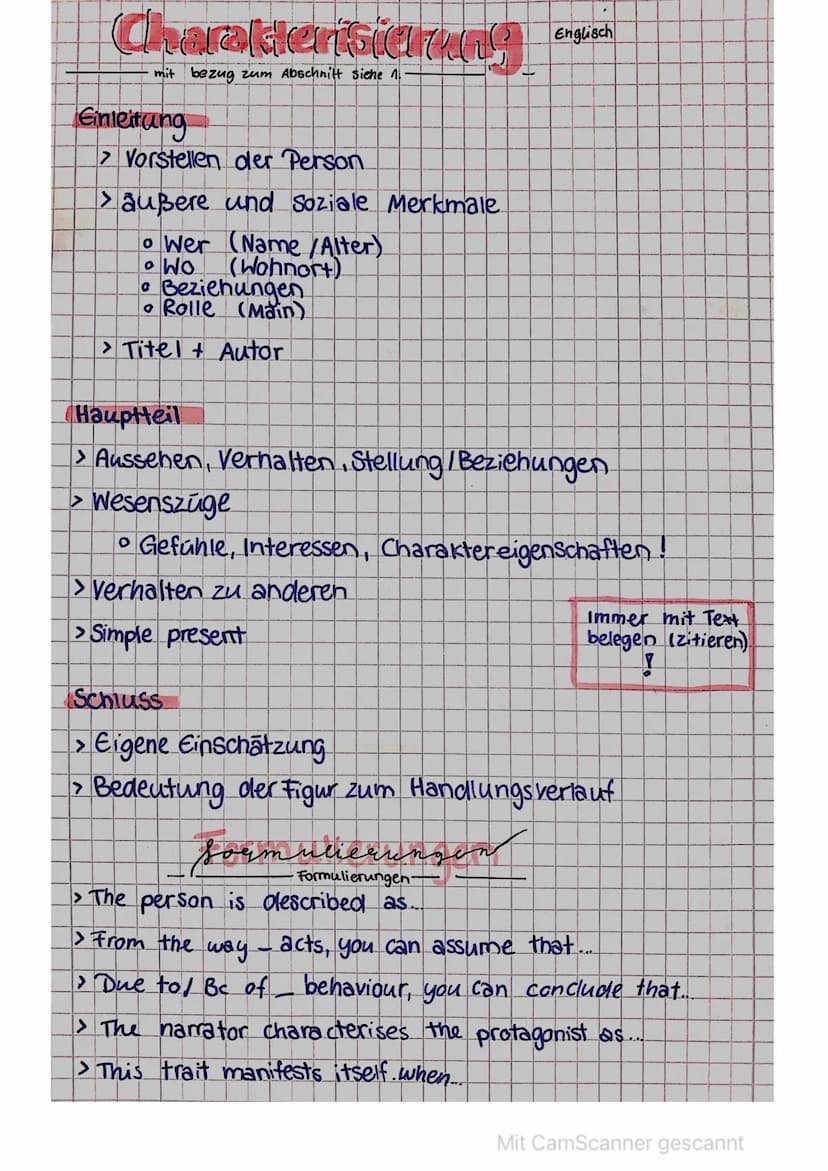 Charakterisierung
Englisch
mit bezug zum Abschnitt siehe 1.
Einleitung
> Vorstellen der Person
> äußere und soziale Merkmale
° Wer (Name / Alter)
° Wo (Wohnort)
° Beziehungen
° Rolle (Main)
> Titel + Autor
Hauptteil
> Aussehen, Verhalten, Stellung / Beziehungen
> Wesenszüge
° Gefühle, Interessen, Charaktereigenschaften !
> Verhalten zu anderen
> Simple present
Immer mit Text
belegen (zitieren)
!
Schluss
> Eigene Einschätzung
> Bedeutung der Figur zum Handlungsverlauf
Formulierungen
Formulierungen
> The person is described as...
> From the way _ acts, you can assume that...
> Due to / Bc of _ behaviour, you can conclude that...
> The narrator characterises the protagonist as...
> This trait manifests itself.when...
Mit CamScanner gescannt